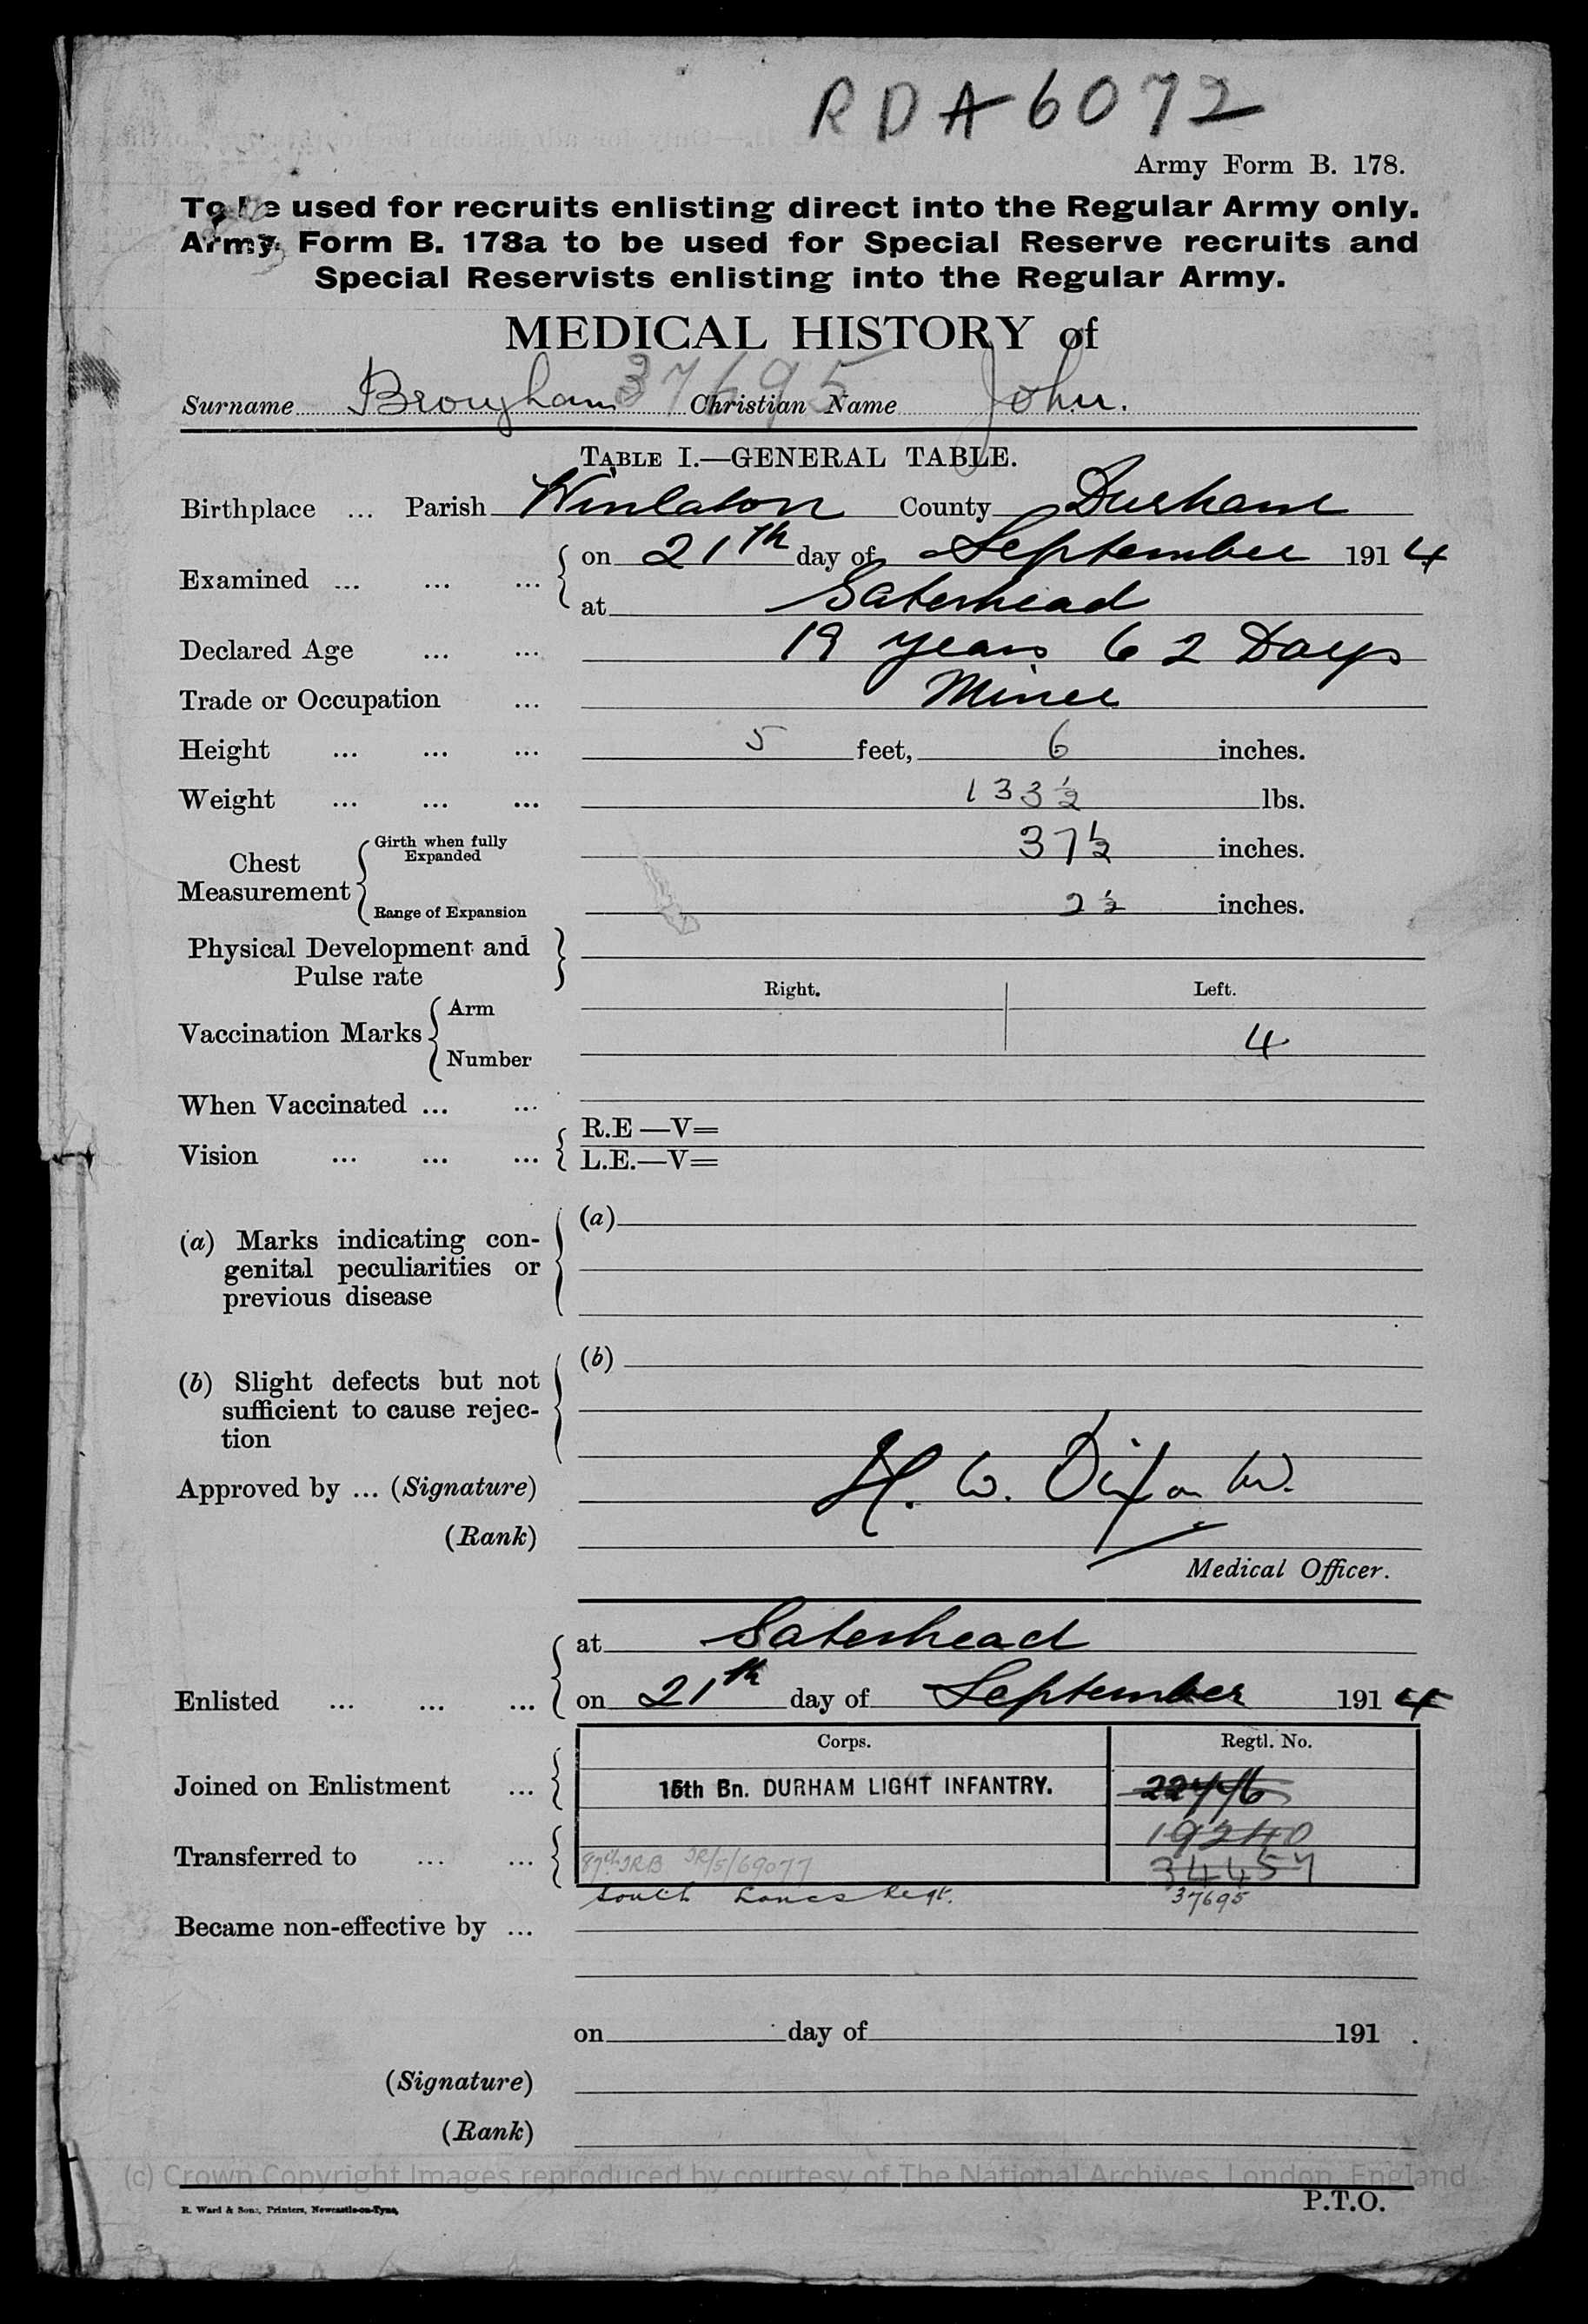 RDA 6072
Army Form B. 178.
To be used for recruits enlisting direct into the Regular Army only.
Army Form B. 178a to be used for Special Reserve recruits and
Special Reservists enlisting into the Regular Army.
MEDICAL HISTORY of
37695
Surname Brougham Christian Name John.
TABLE I.—GENERAL TABLE.
Birthplace ... Parish Winlaton County Durham
Examined ... ... ... on 21th day of September 1914
at Gateshead
Declared Age ... ... 19 years 62 Days
Trade or Occupation ... Miner
Height ... ... ... 5 feet, 6 inches.
Weight ... ... ... 133½ lbs.
Chest Measurement
Girth when fully Expanded 37½ inches.
Range of Expansion 2½ inches.
Physical Development and
Pulse rate
Right. Left.
Vaccination Marks Arm
Number 4
When Vaccinated ... ...
Vision ... ... ... R.E—V=
L.E.—V=
(a) Marks indicating con-
genital peculiarities or
previous disease
(a)
(b) Slight defects but not
sufficient to cause rejec-
tion
(b)
Approved by ... (Signature) H. W. Dixon
(Rank)
Medical Officer.
at Gateshead
Enlisted ... ... ... on 21th day of September 1914
Corps. Regtl. No.
Joined on Enlistment ... 15th Bn. DURHAM LIGHT INFANTRY.
19240
Transferred to ... ... 87th TRB TR/5/69077 34457
South Lancs Regt. 37695
Became non-effective by ...
on day of 191 .
(Signature)
(Rank)
(c) Crown Copyright Images reproduced by courtesy of The National Archives, London, England
R. Ward & Sons, Printers, Newcastle-on-Tyne,
P.T.O.